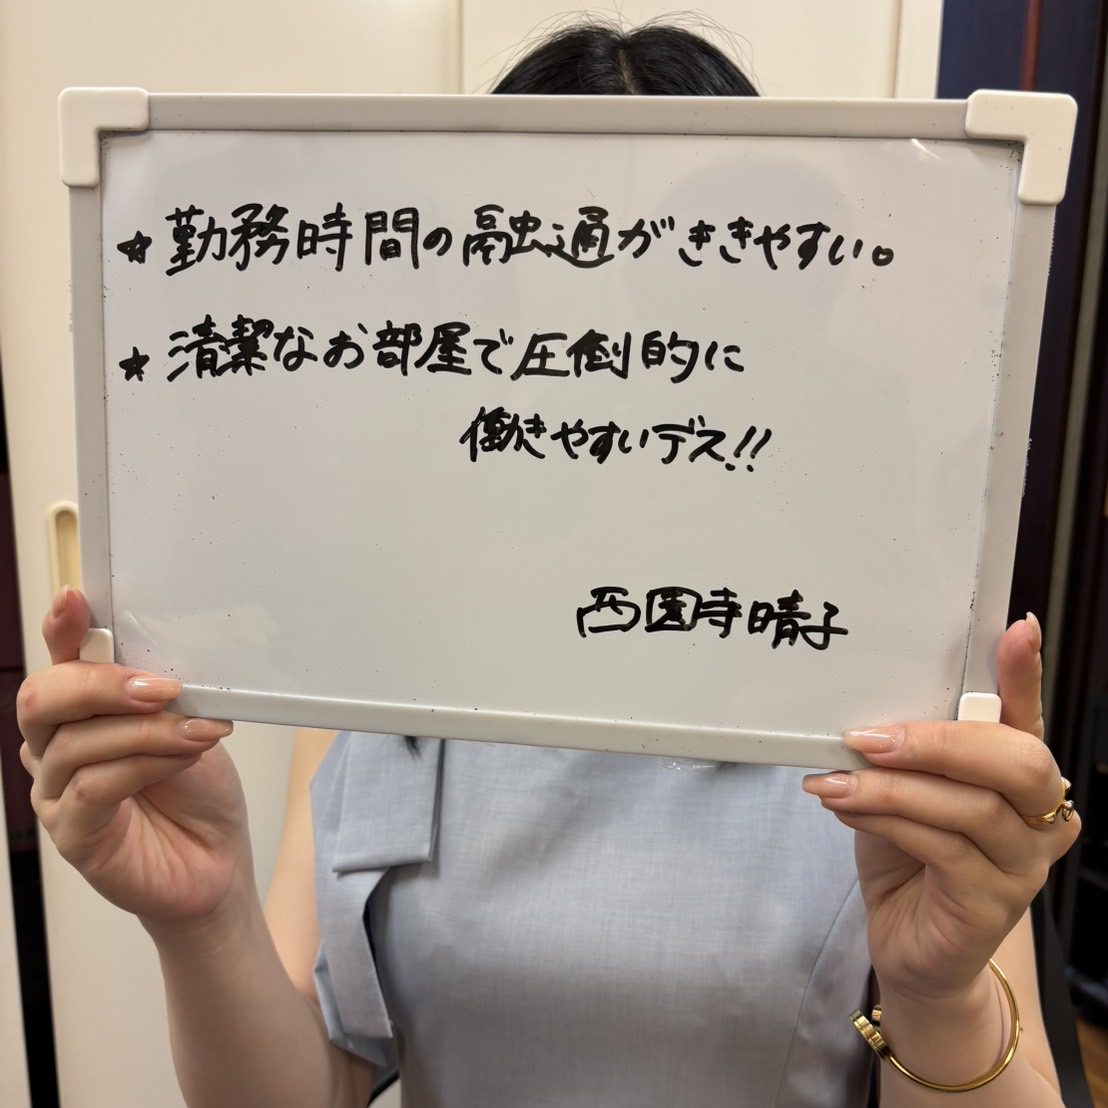 ☆勤務時間の融通がききやすい。
☆清潔なお部屋で圧倒的に
働きやすいデス!!
西園寺晴子